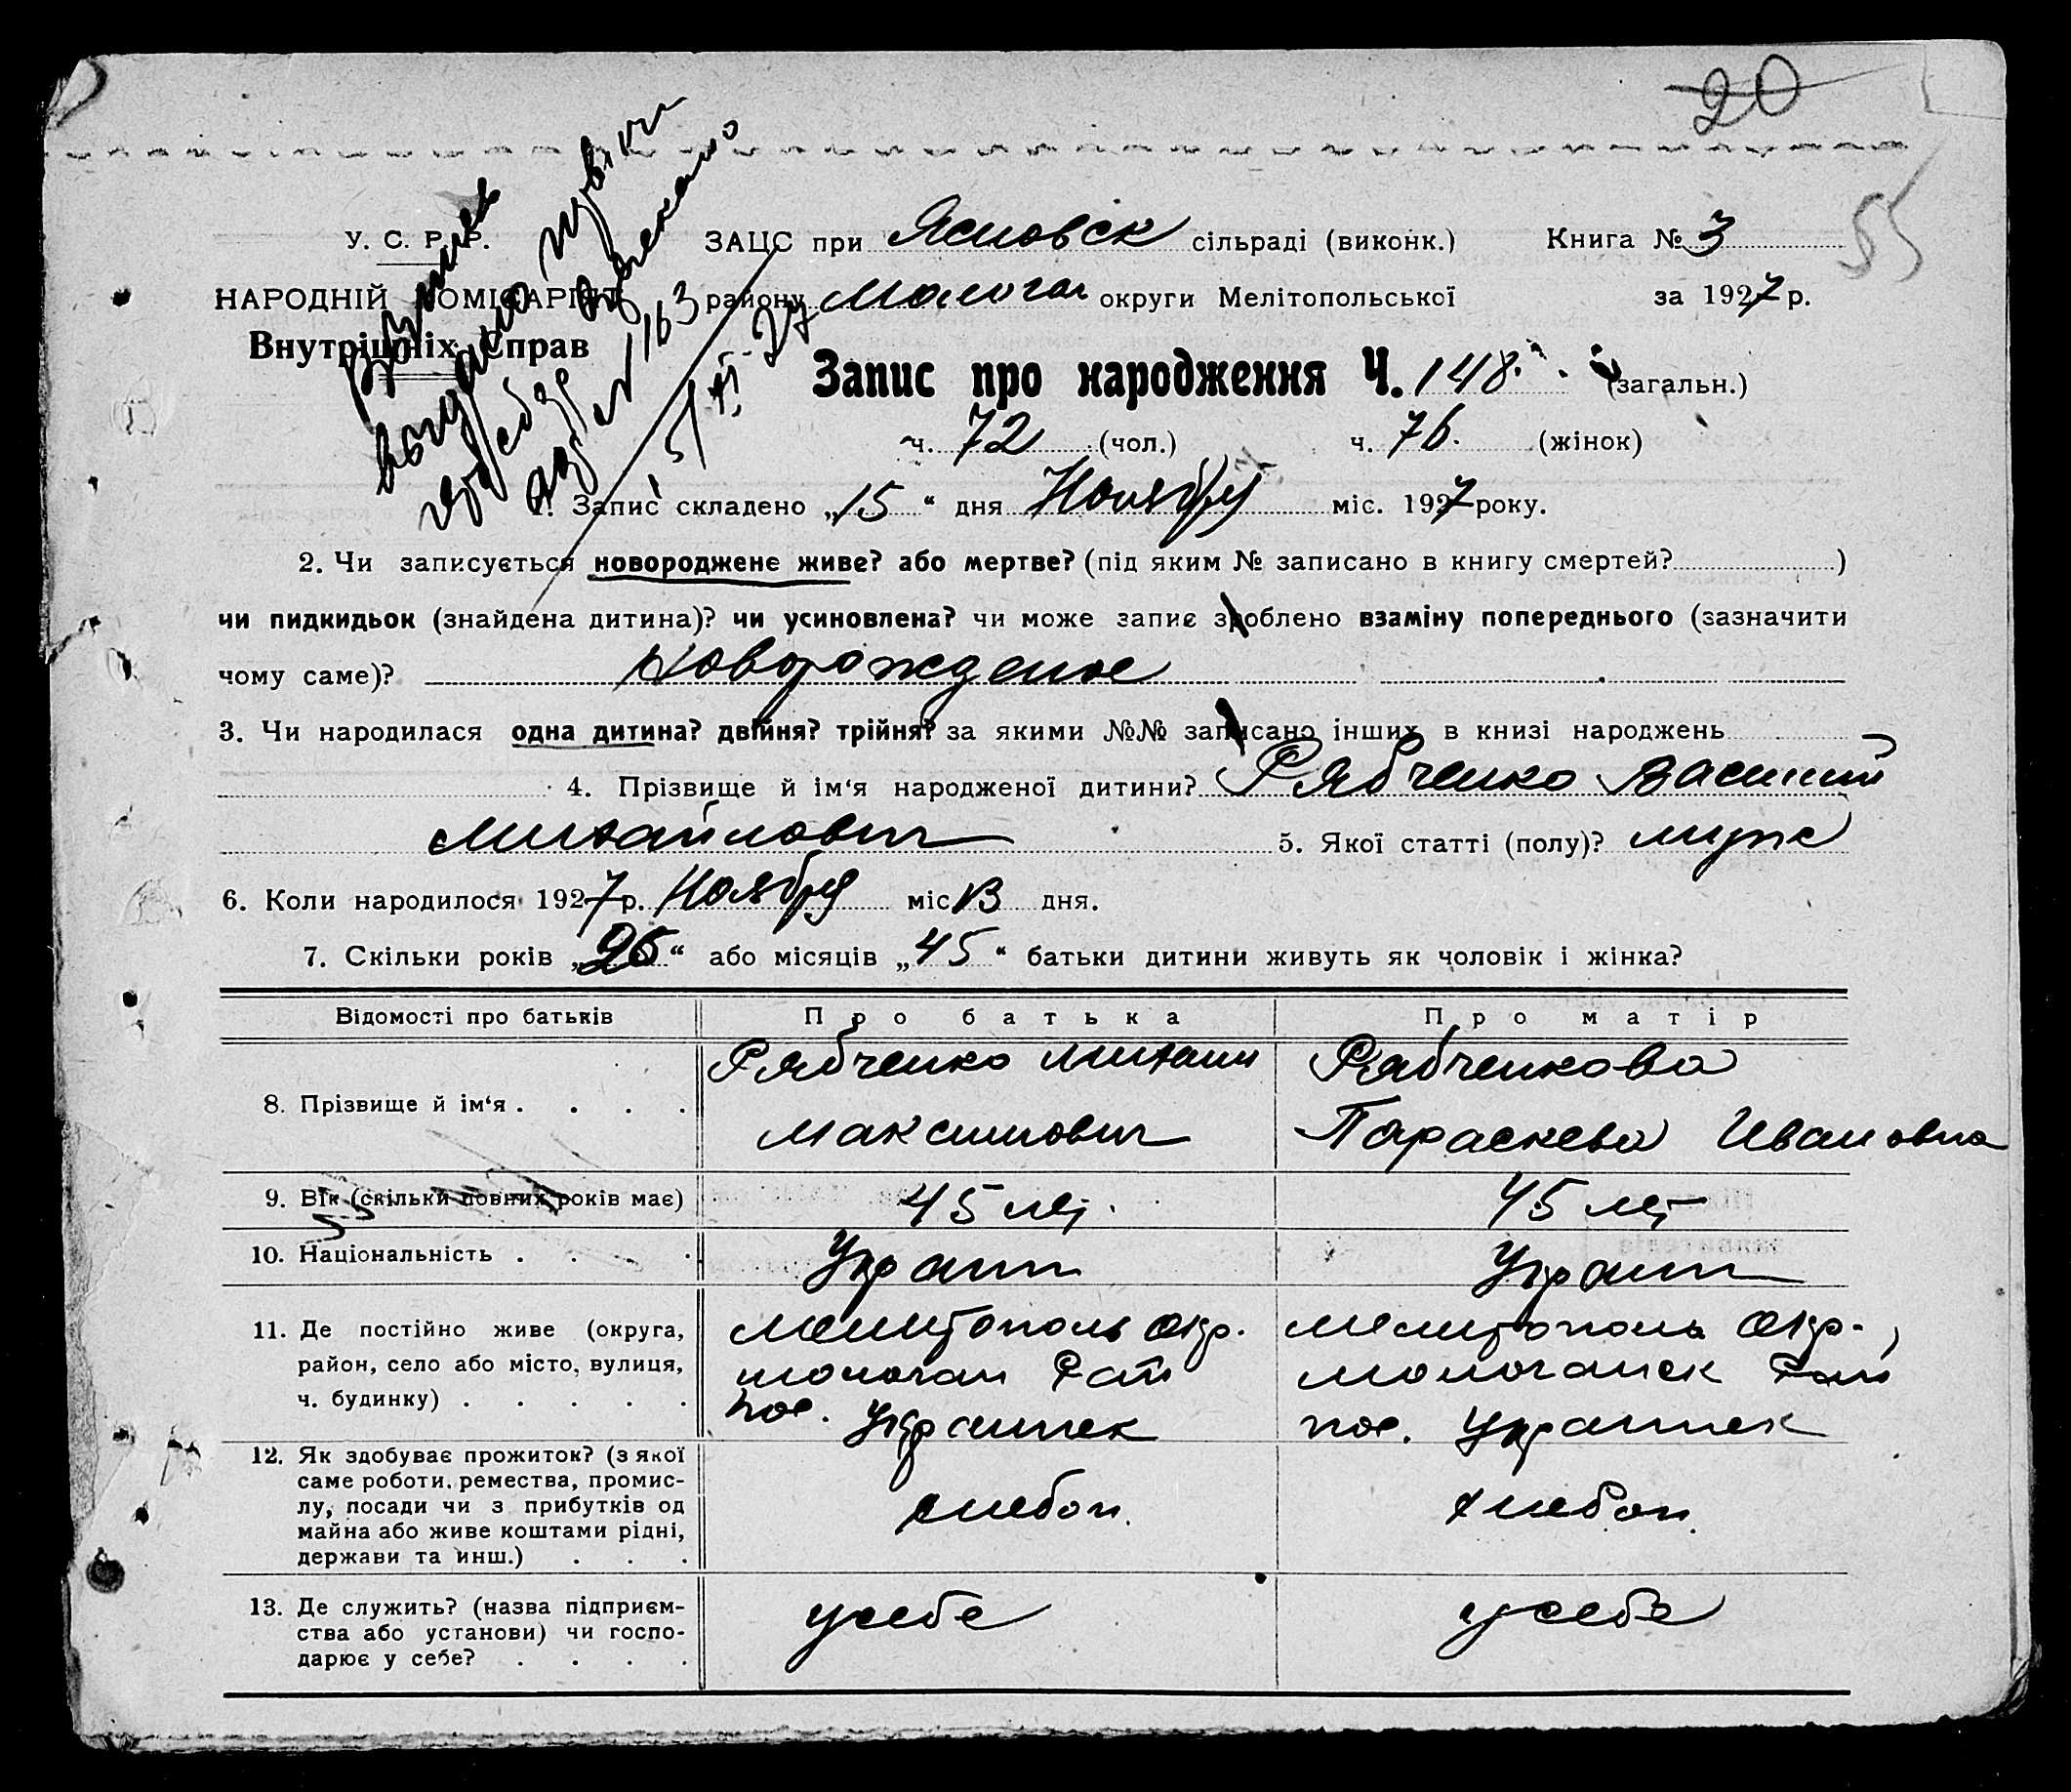 20
55
У. С. Р. Р.
НАРОДНІЙ КОМІСАРІЯТ
Внутрішніх Справ
ЗАЦС при Ясиовск сільраді (виконк.) Книга № 3
району Молочан округи Мелітопольської за 1927 р.
Запис про народження Ч. 148. (загальн.)
ч. 72 (чол.) ч. 76. (жінок)
№ 163
1. Запис складено „15“ дня Ноября міс. 1927 року.
2. Чи записується новороджене живе? або мертве? (під яким № записано в книгу смертей? )
чи пидкидьок (знайдена дитина)? чи усиновлена? чи може запис зроблено взаміну попереднього (зазначити
чому саме)? Новорожденое
3. Чи народилася одна дитина? двійня? трійня? за якими №№ записано інших в книзі народжень
4. Прізвище й ім‘я народженої дитини? Рябченко Василий
Михайлович 5. Якої статті (полу)? муже
6. Коли народилося 1927 р. Ноября міс 13 дня.
7. Скільки років „26“ або місяців „45“ батьки дитини живуть як чоловік і жінка?
Відомості про батьків Про батька Про матір
8. Прізвище й ім‘я . . . . Рябченко Михаил Максимович Рябченкова Параскева Ивановна
9. Вік (скільки повних років має) 45 лет. 45 лет
10. Національність . . . . Украин Украин
11. Де постійно живе (округа, район, село або місто, вулиця, ч. будинку) . . . . . Мелитополь окр. молочан Рай пос. Украинск Мелитополь окр. Молочанск Рай пос. Украинск
12. Як здобуває прожиток? (з якої саме роботи, ремества, промислу, посади чи з прибутків од майна або живе коштами рідні, держави та инш.) . . . хлебоп. хлебоп.
13. Де служить? (назва підприємства або установи) чи господарює у себе? . . . . у себе у себе